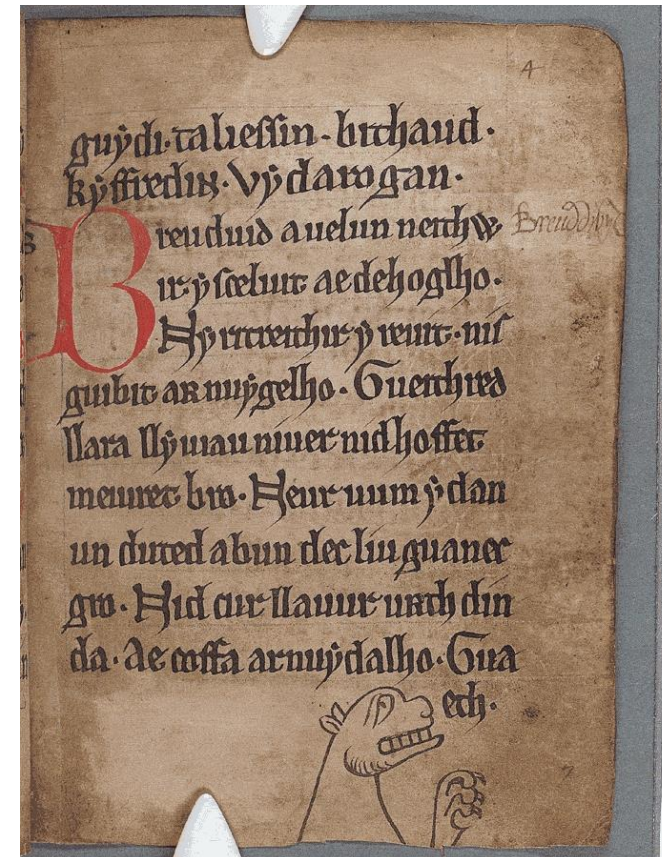 4
guẏdi. taliessin. bithaud.
kẏffredin. vẏ darogan.
Breuduid a uelun neithw Breuddwyd
ir. ẏ sceluir ae dehoglho.
Nẏ ritreithir ẏ reuit. nis
guibit ar nuẏgelho. Gueithred
llara llẏwiau niuer nid hoffet
meiuret bro. Neur uum ẏ dan
un duted a bun dec liu guanec
gro. Nid cur llauur urth din
da. Ae coffa ar nuẏdalho. Gua
eth.